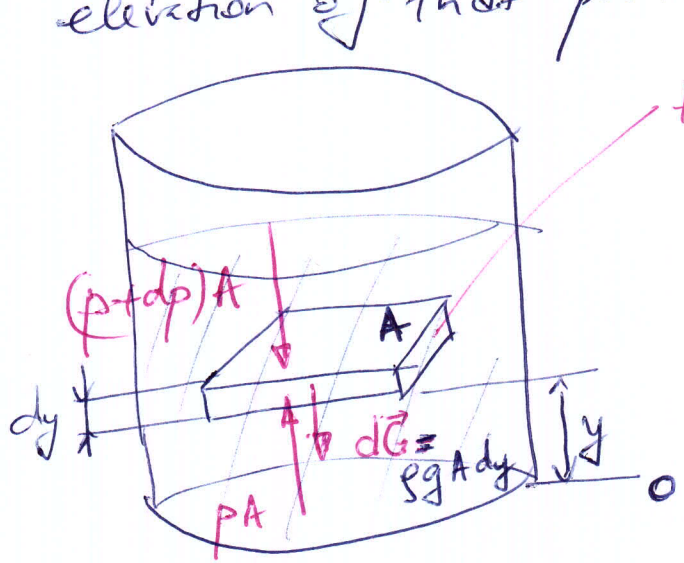 elevation of that p
(p+dp)A
A
dy
dG⃗ =
ρgAdy
y
pA
0